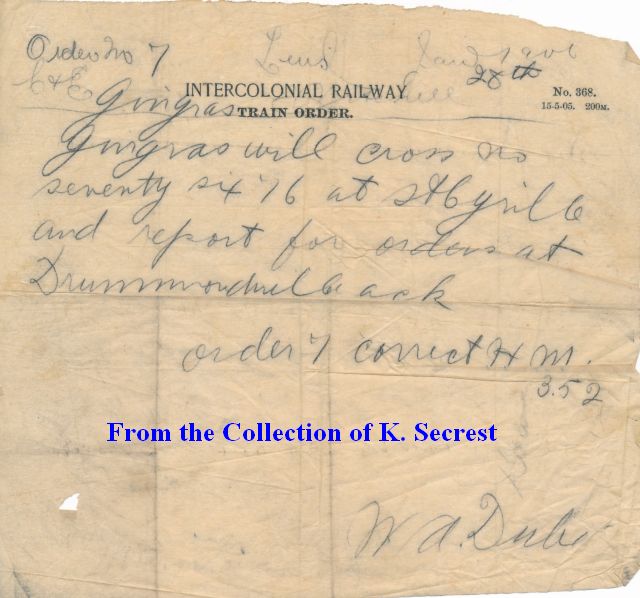 Order No 7 Levis Jan 1906
28th
INTERCOLONIAL RAILWAY
No. 368.
C & E Gingras
TRAIN ORDER.
15-5-05. 200M.
Gingras will cross No
seventy six 76 at St Cyrille
and report for orders at
Drummondville ack
order 7 correct H M.
3.52
From the Collection of K. Secrest
W A. Dube